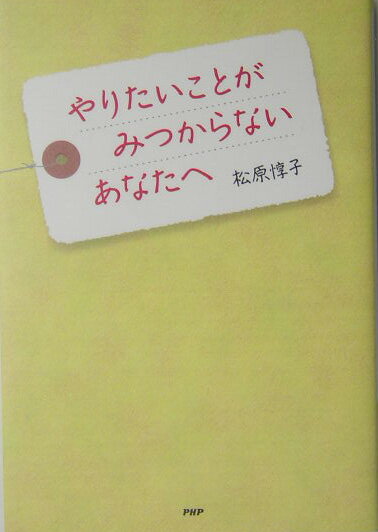 やりたいことが
みつからない
あなたへ
松原惇子
PHP